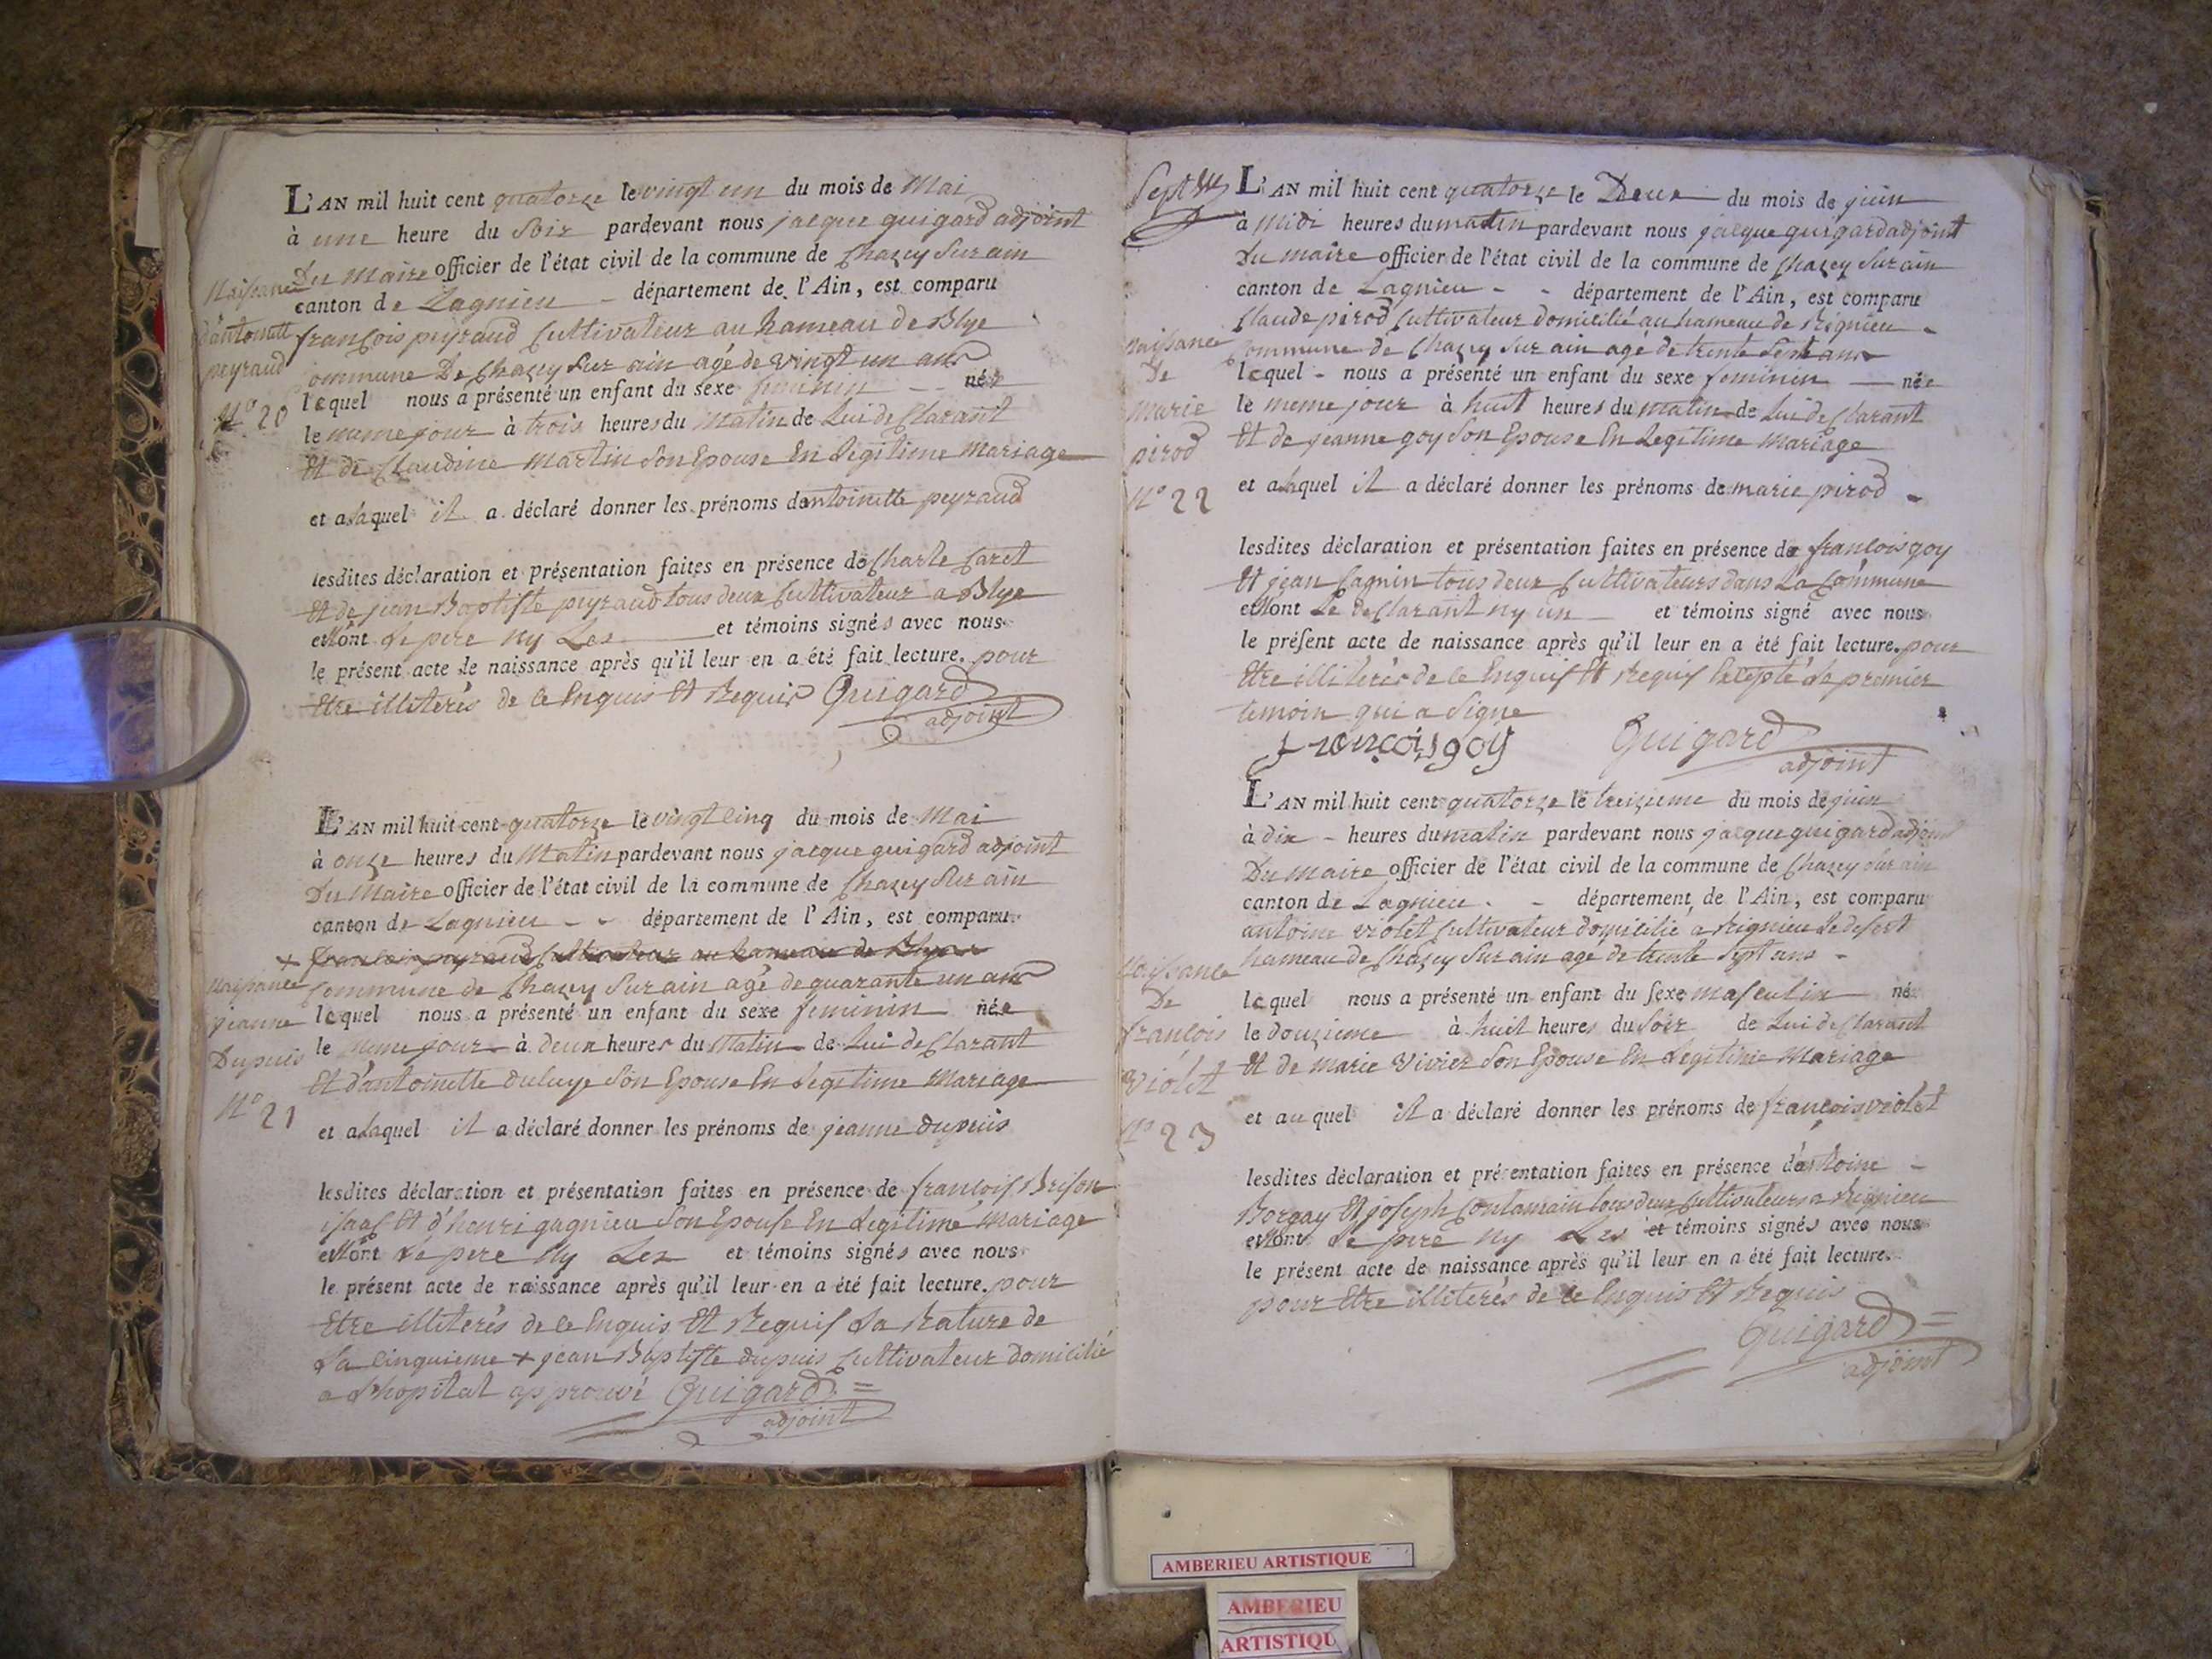 L'AN mil huit cent quatorze le vingt un du mois de Mai
à une heure du Soir pardevant nous jacque guigard adjoint
Du Maire officier de l'état civil de la commune de Chazey Sur ain
canton de Lagnieu - département de l'Ain, est comparu
françois peyraud Cultivateur au hameau de Blye
Commune De Chazey Sur ain agé de vingt un ans
lequel nous a présenté un enfant du sexe feminin - née
le meme jour à trois heures du Matin de Lui declarant
Et de Claudine Martin Son Epouse En Legitime Mariage
et a laquel il a déclaré donner les prénoms dantoinette peyraud
lesdites déclaration et présentation faites en présence de Charle Caret
Et de jean Baptiste peyraud tous deux Cultivateur a Blye
et ont Le pere ny Les et témoins signés avec nous
le présent acte de naissance après qu'il leur en a été fait lecture. pour
Etre illiterés de ce Enquis Et Requis Guigard
adjoint
Naissance
d'antoinette
peyraud
N° 20
L'AN mil huit cent quatorze le vingt cinq du mois de Mai
à onze heures du Matin pardevant nous jacque guigard adjoint
Du Maire officier de l'état civil de la commune de Chazey Sur ain
canton de Lagnieu - - département de l'Ain, est comparu
+ francois peyraud Cultivateur au hameau de Blye
Commune de Chazey Sur ain agé de quarante un ans
lequel nous a présenté un enfant du sexe feminin née
le meme jour à deux heures du Matin de Lui declarant
Et d'antoinette duluye Son Epouse En Legitime Mariage
et a laquel il a déclaré donner les prénoms de jeanne dupuis
lesdites déclaration et présentation faites en présence de francois Brison
isaac Et d'henri gagnieu Son Epouse En Legitime Mariage
et ont Le pere Ny Les et témoins signés avec nous
le présent acte de naissance après qu'il leur en a été fait lecture. pour
Etre illiterés de ce Enquis Et Requis La Rature de
La cinquieme + jean Baptiste dupuis Cultivateur domicilié
a Lhopital approuvé Guigard =
adjoint
Naissance
jeanne
Dupuis
N° 21
L'AN mil huit cent quatorze le Deux du mois de juin
à Midi heures du matin pardevant nous jacque guigard adjoint
Du maire officier de l'état civil de la commune de Chazey Sur ain
canton de Lagnieu - - département de l'Ain, est comparu
Claude pirod Cultivateur domicilié au hameau de Rignieu -
Commune de Chazey Sur ain agé de trente Sept ans
lequel - nous a présenté un enfant du sexe feminin — née
le meme jour à huit heures du matin de Lui declarant
Et de jeanne goy Son Epouse En Legitime Mariage
et a laquel il a déclaré donner les prénoms de marie pirod -
lesdites déclaration et présentation faites en présence de francois goy
Et jean Cagnin tous deux Cultivateurs dans La Commune
et ont Le declarant ny un - et témoins signé avec nous
le présent acte de naissance après qu'il leur en a été fait lecture. pour
Etre illiterés de ce Enquis Et Requis Excepté Le premier
temoin qui a Signe
françois goy Guigard
adjoint
Naissance
De
Marie
pirod
N° 22
L'AN mil huit cent quatorze le treizieme du mois de juin
à dix - heures du matin pardevant nous jacque guigard adjoint
Du Maire officier de l'état civil de la commune de Chazey Sur ain
canton de Lagnieu - - département de l'Ain, est comparu
antoine violet Cultivateur domicilié a Rignieu Le desert
hameau de Chazey Sur ain agé de trente Sept ans -
lequel nous a présenté un enfant du sexe masculin né
le douzieme à huit heures du Soir de Lui declarant
Et de Marie Vivier Son Epouse En Legitime Mariage
et au quel il a déclaré donner les prénoms de francois violet
lesdites déclaration et présentation faites en présence d'antoine -
Borgay Et joseph Contamain tous deux Cultivateurs a Rignieu
et ont Le pere ny Les et témoins signés avec nous
le présent acte de naissance après qu'il leur en a été fait lecture.
pour Etre illiterés de ce Enquis Et Requis
Guigard =
adjoint
Naissance
De
francois
Violet
N° 23
AMBERIEU ARTISTIQUE
AMBERIEU
ARTISTIQU